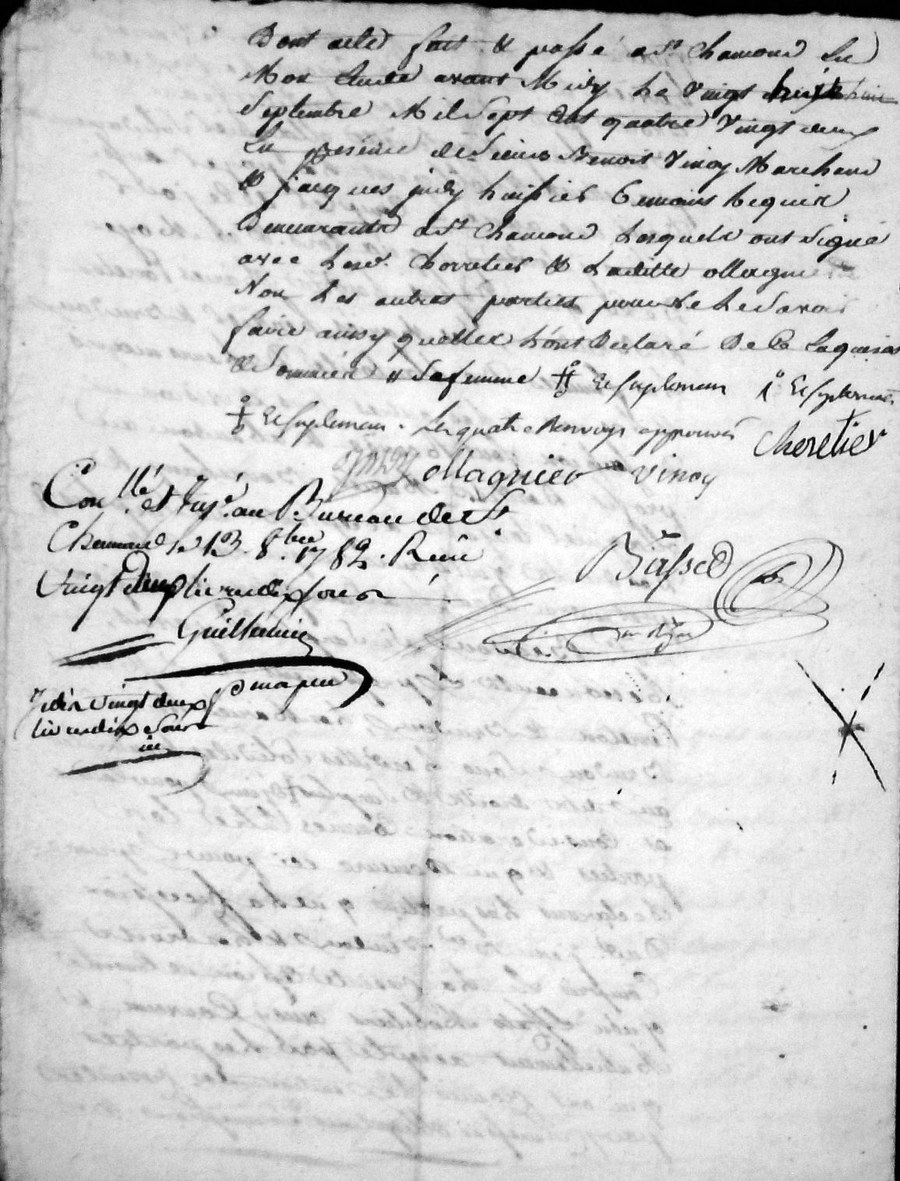 Dont acte fait & passé a St Chamond En
Mon Etude avant Midy Le Vingt huit
Septembre Mil Sept Cent quatre Vingt deux
En presence de Sieurs Benoit Vinoy Marchand
& Jacques Judy huissier temoins Requis
Demeurants a St Chamond Lesquels ont Signé
avec Les d. Cheretier & Laditte ollagnier
Non Les autres parties pour ne Le Savoir
faire ainsy quelles L'ont Declaré De Ce Enquises
& Sommées
Les quatre Renvoys approuvés cheretier
ollagnier Vinoy
Con.llé et Insé au Bureau de St
Chamond le 13. 8.bre 1782. Reçu
Vingt deux livres dix sous
Guillemin
Basset
Idem vingt deux
livres dix Sous